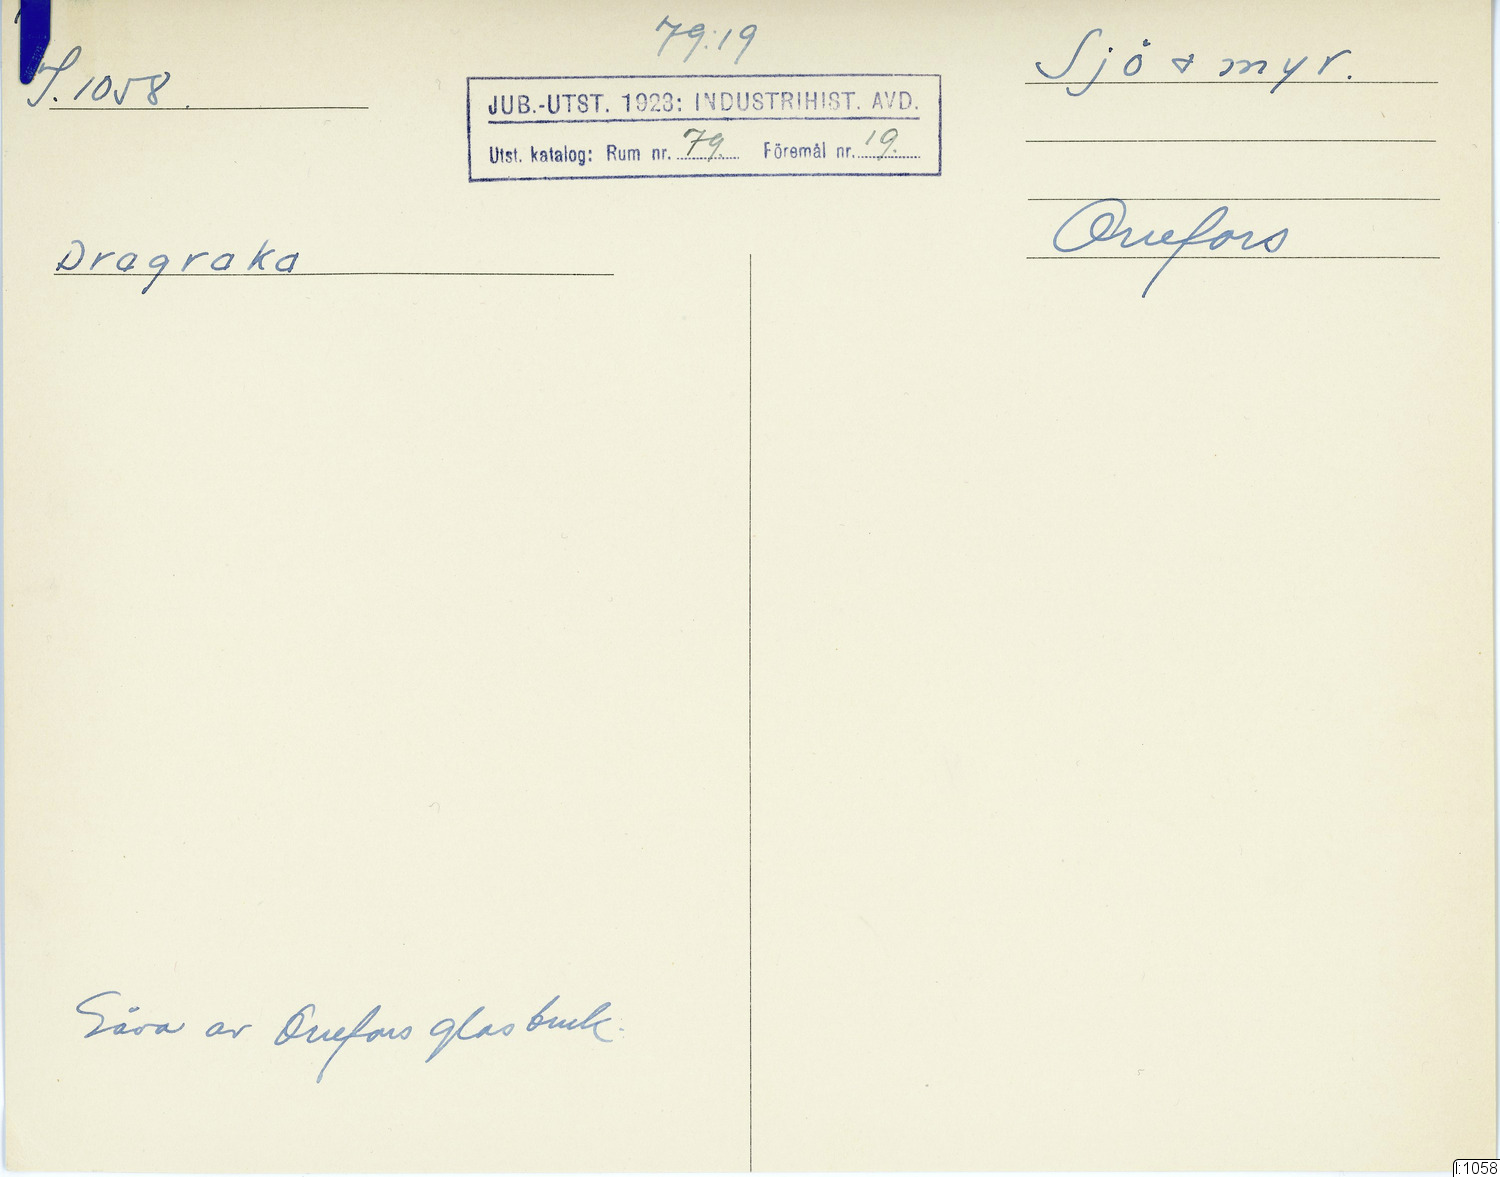 79:19
I.1058.
Sjö & myr.
JUB.-UTST. 1923: INDUSTRIHIST. AVD.
Utst. katalog: Rum nr. 79. Föremål nr. 19.
Orrefors
Dragraka
Gåva av Orrefors glasbruk.
I:1058